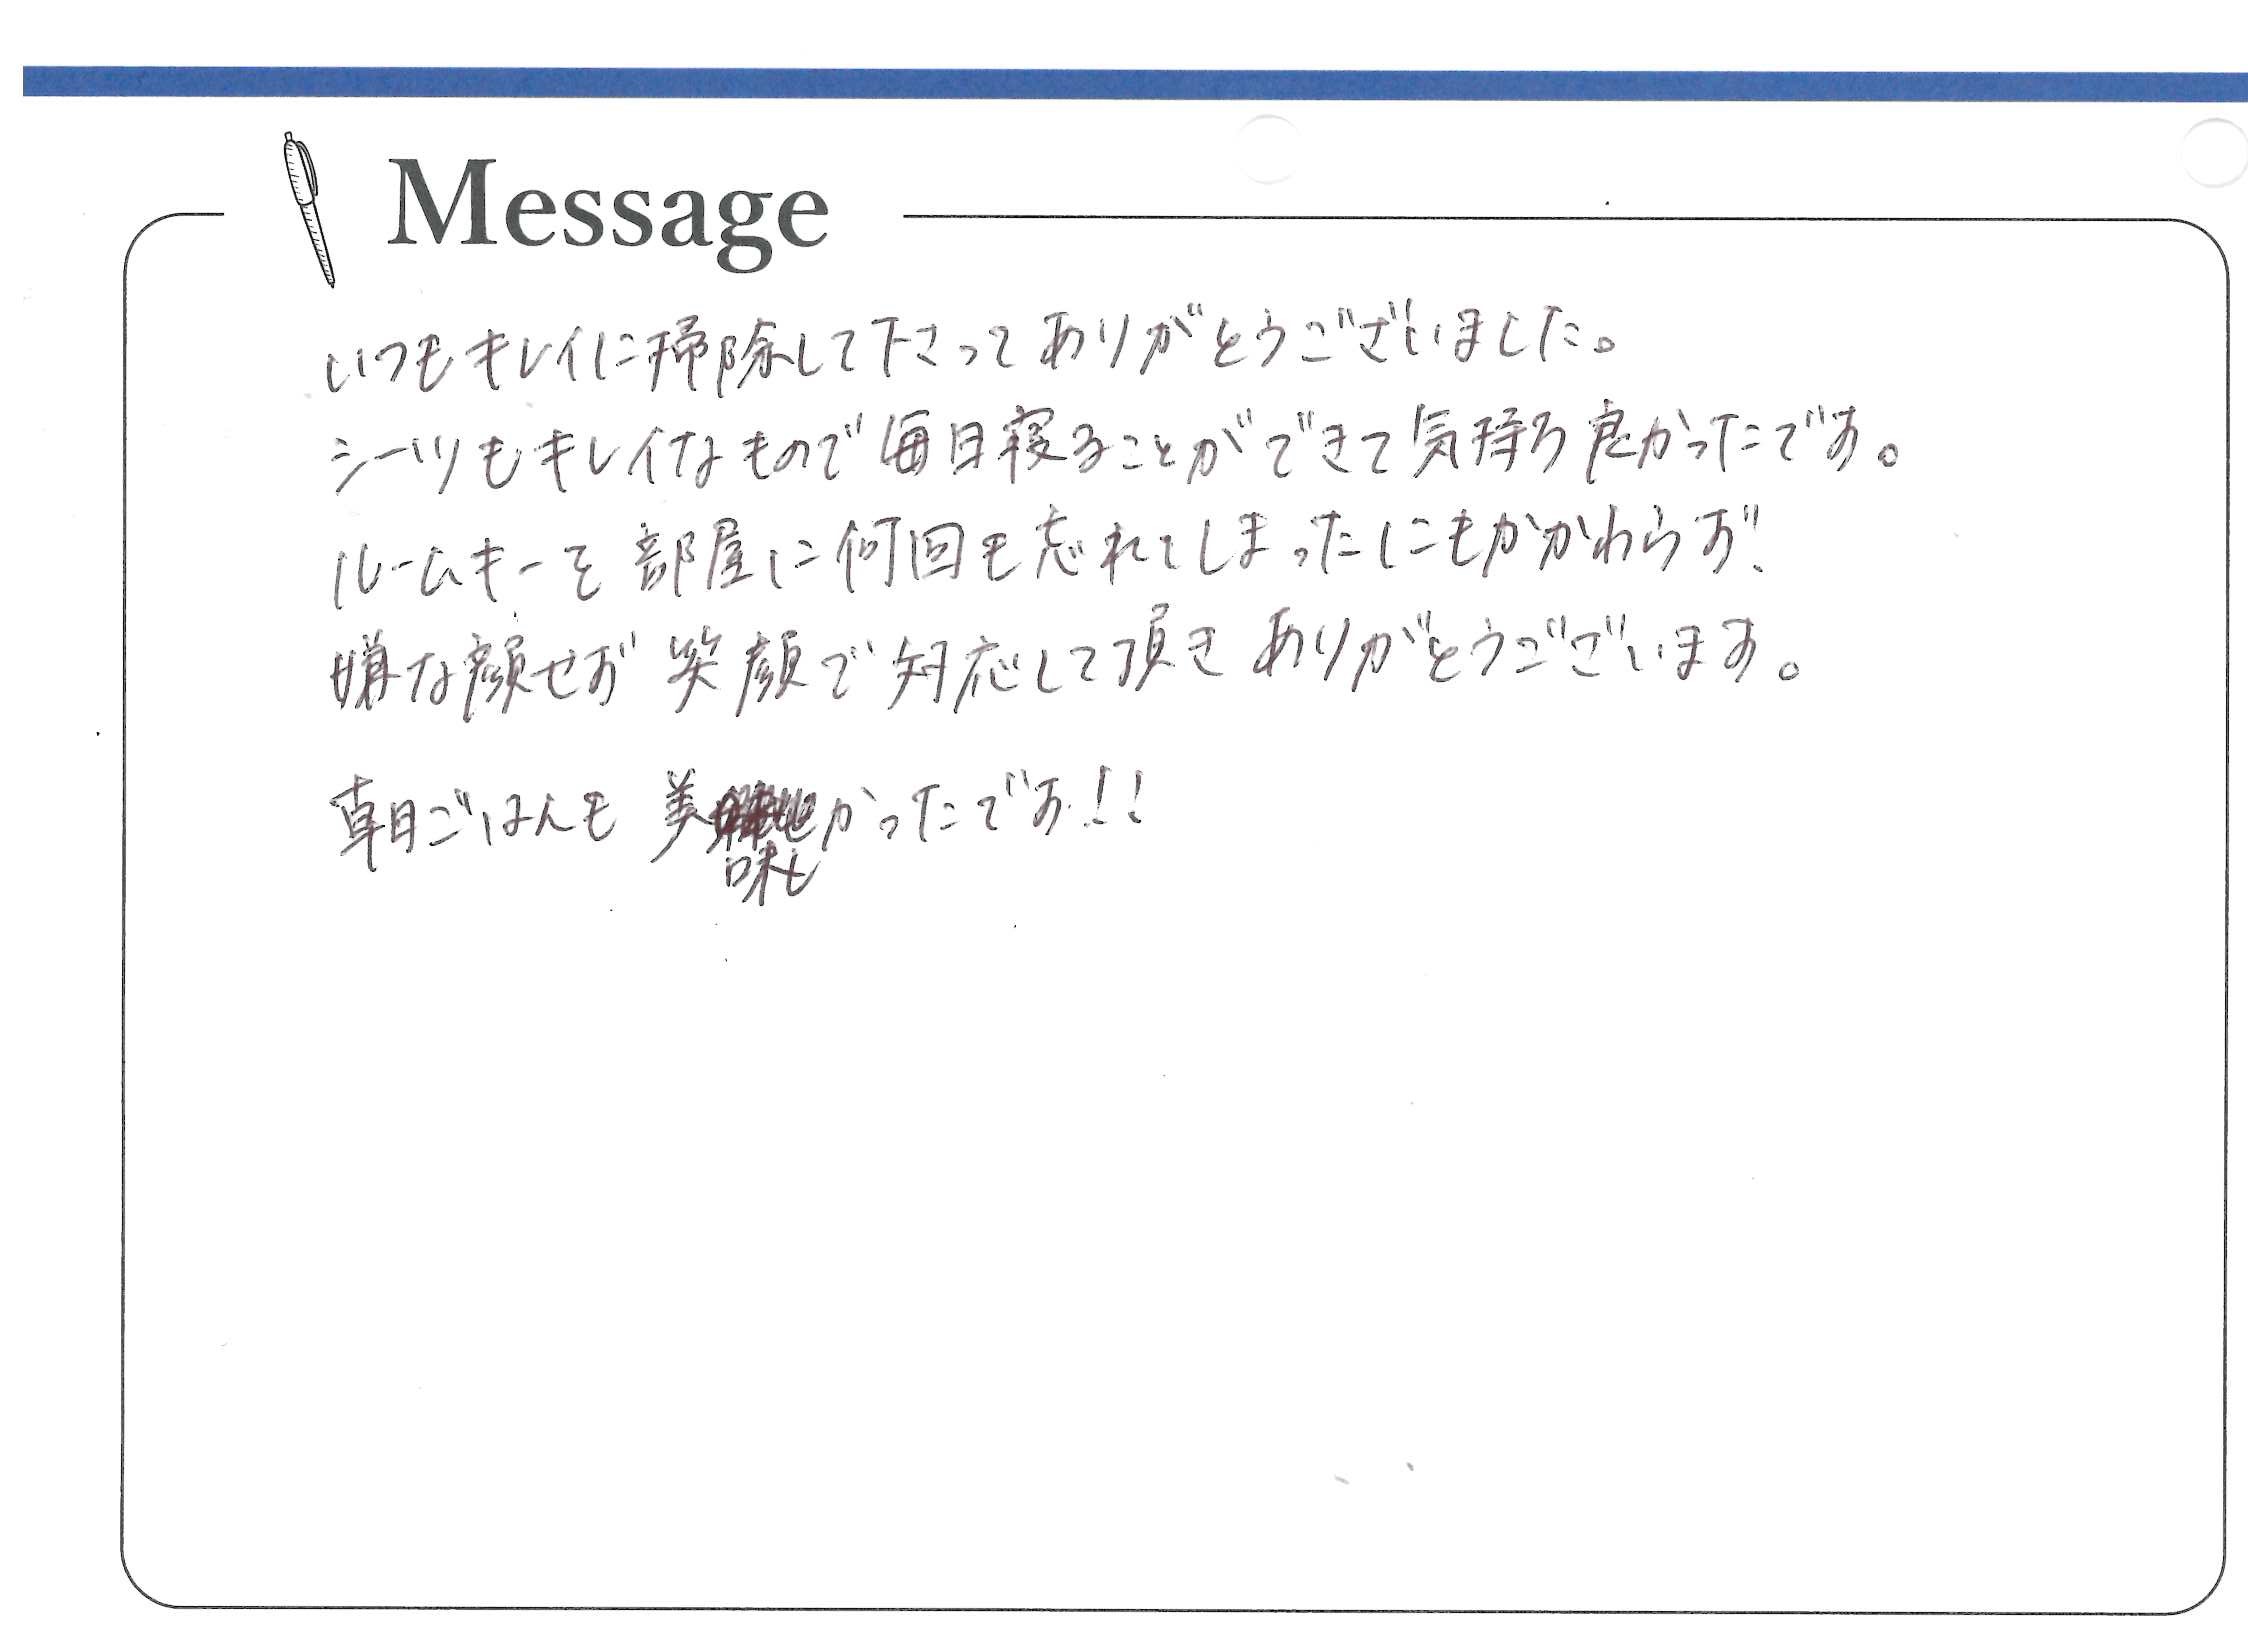 Message
いつもキレイに掃除して下さってありがとうございました。
シーツもキレイなもので毎日寝ることができて気持ち良かったです。
ルームキーを部屋に何回も忘れてしまったにもかかわらず!
嫌な顔せず笑顔で対応して頂きありがとうございます。
朝ごはんも美味しかったです!!